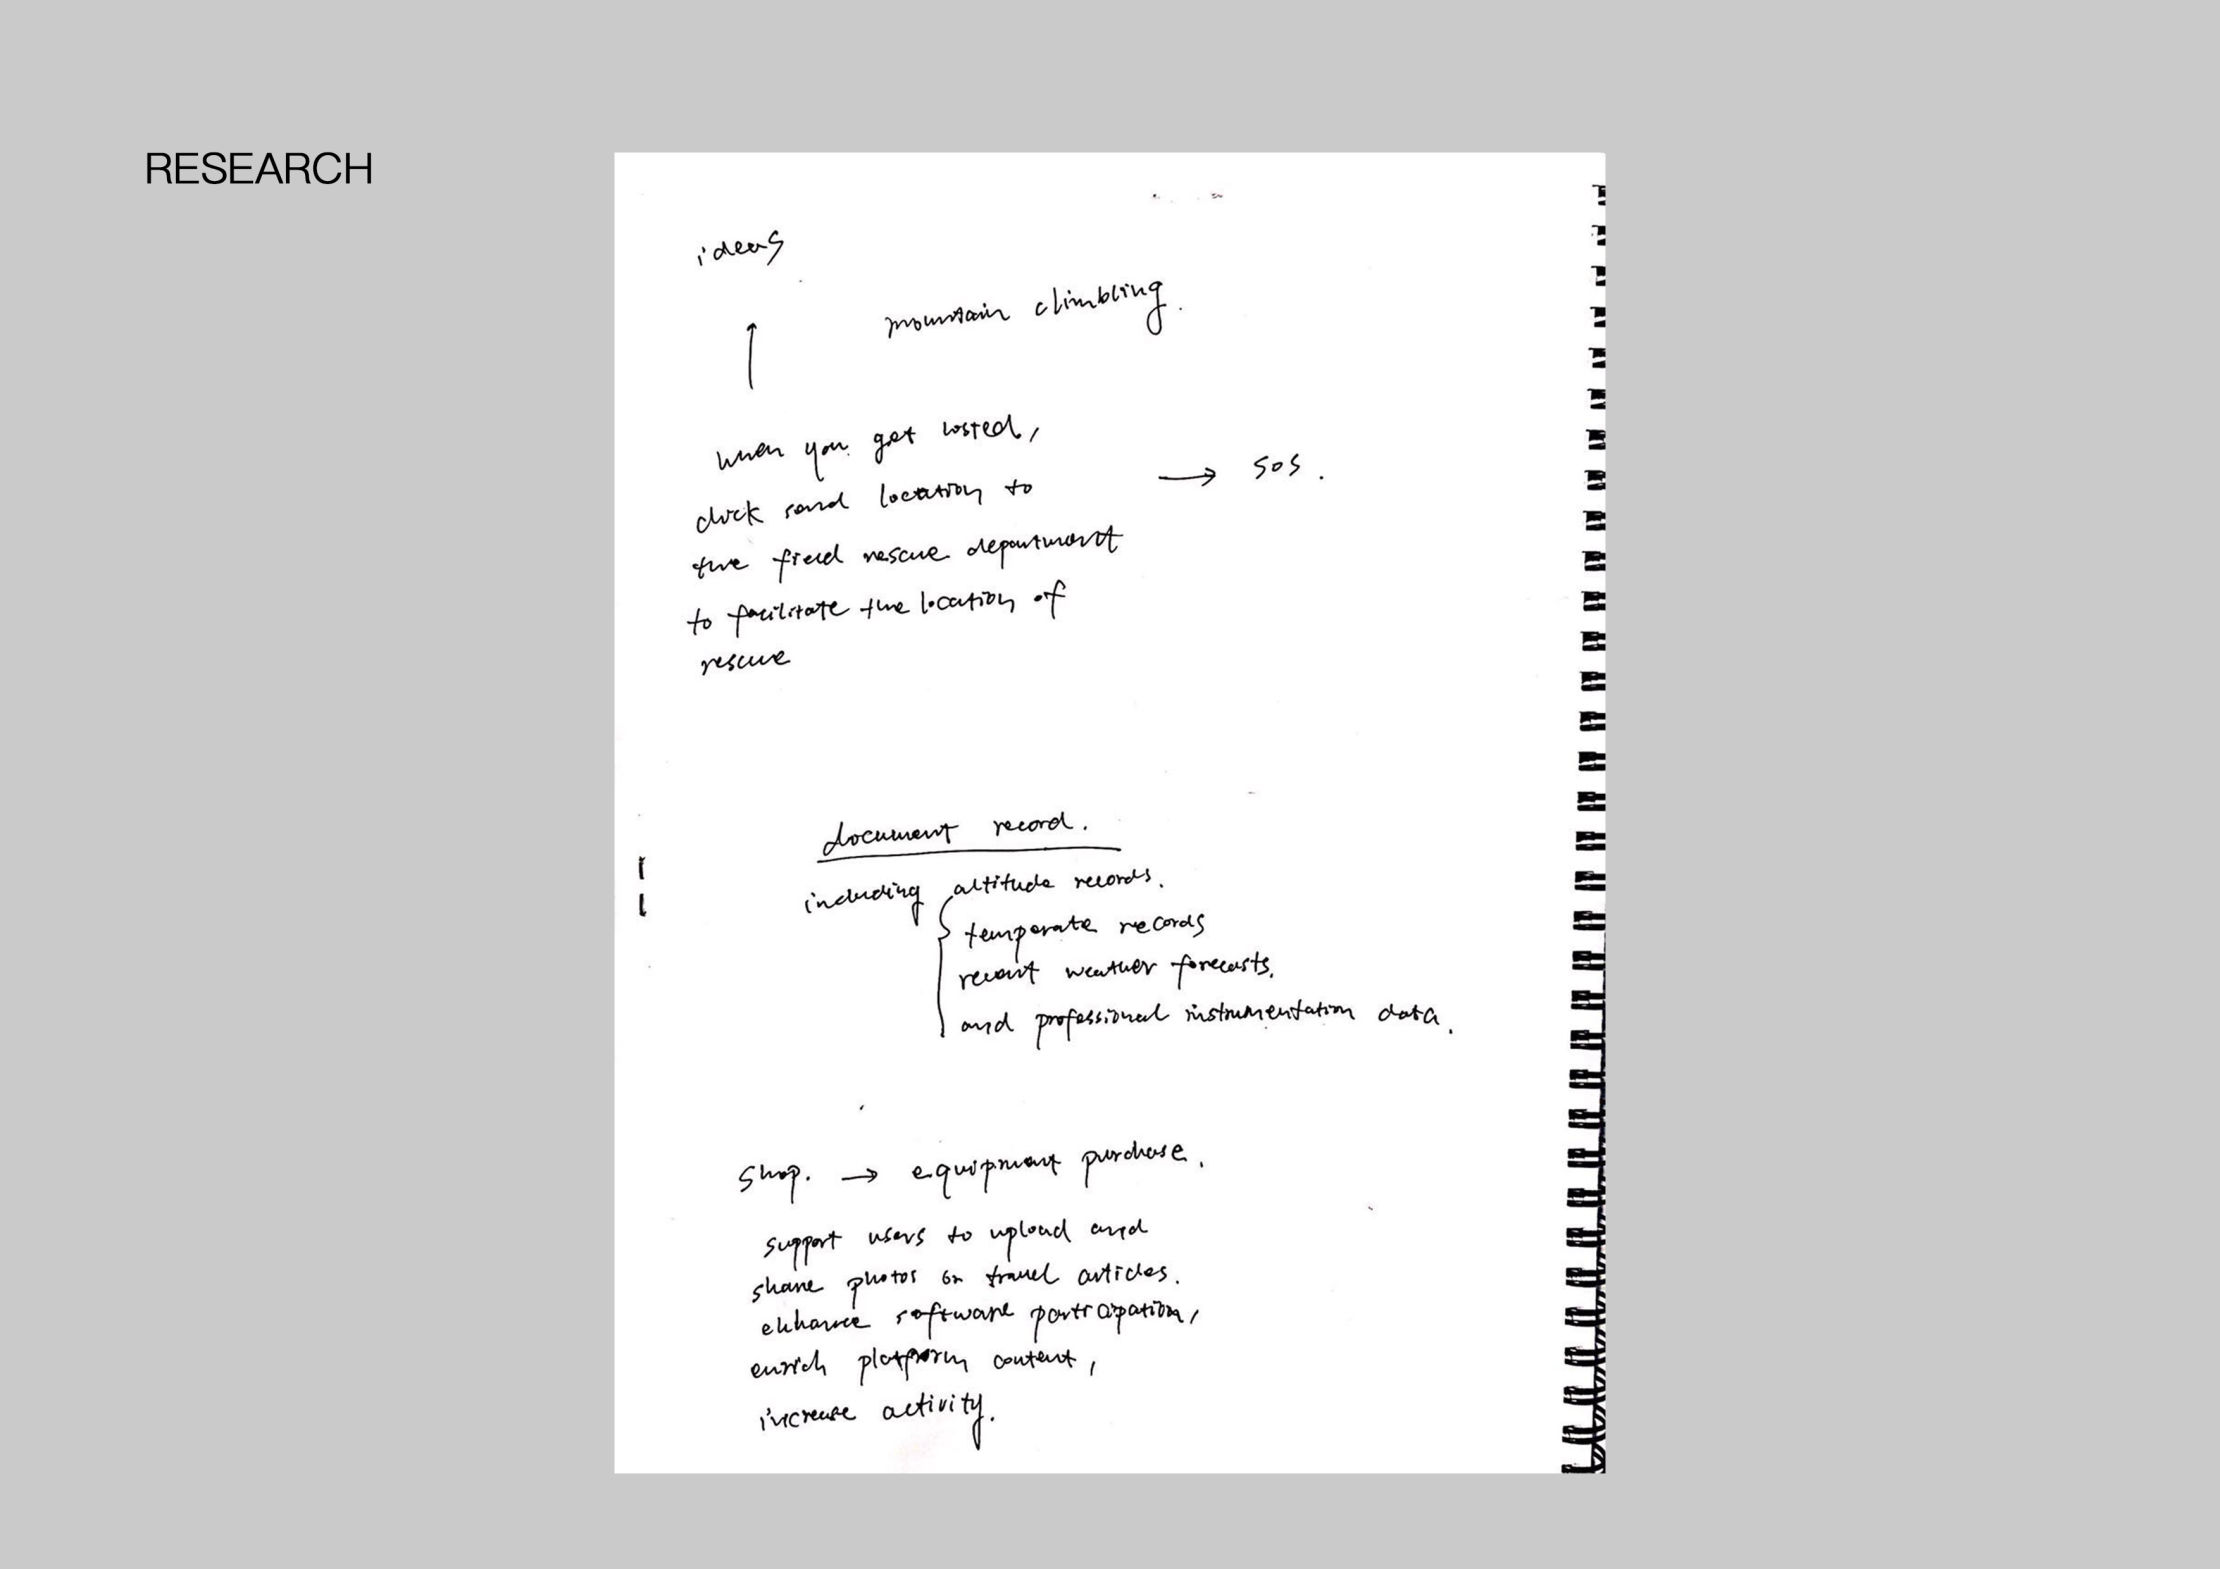 RESEARCH
ideas
mountain climbling.
when you get losted,
click send location to → SOS.
the field rescue department
to facilitate the location of
rescue
document record.
including altitude records.
temperate records
recent weather forecasts.
and professional instrumentation data.
Shop. → equipment purchase.
support users to upload and
share photos or travel articles.
enhance software participation,
enrich platform content,
increase activity.